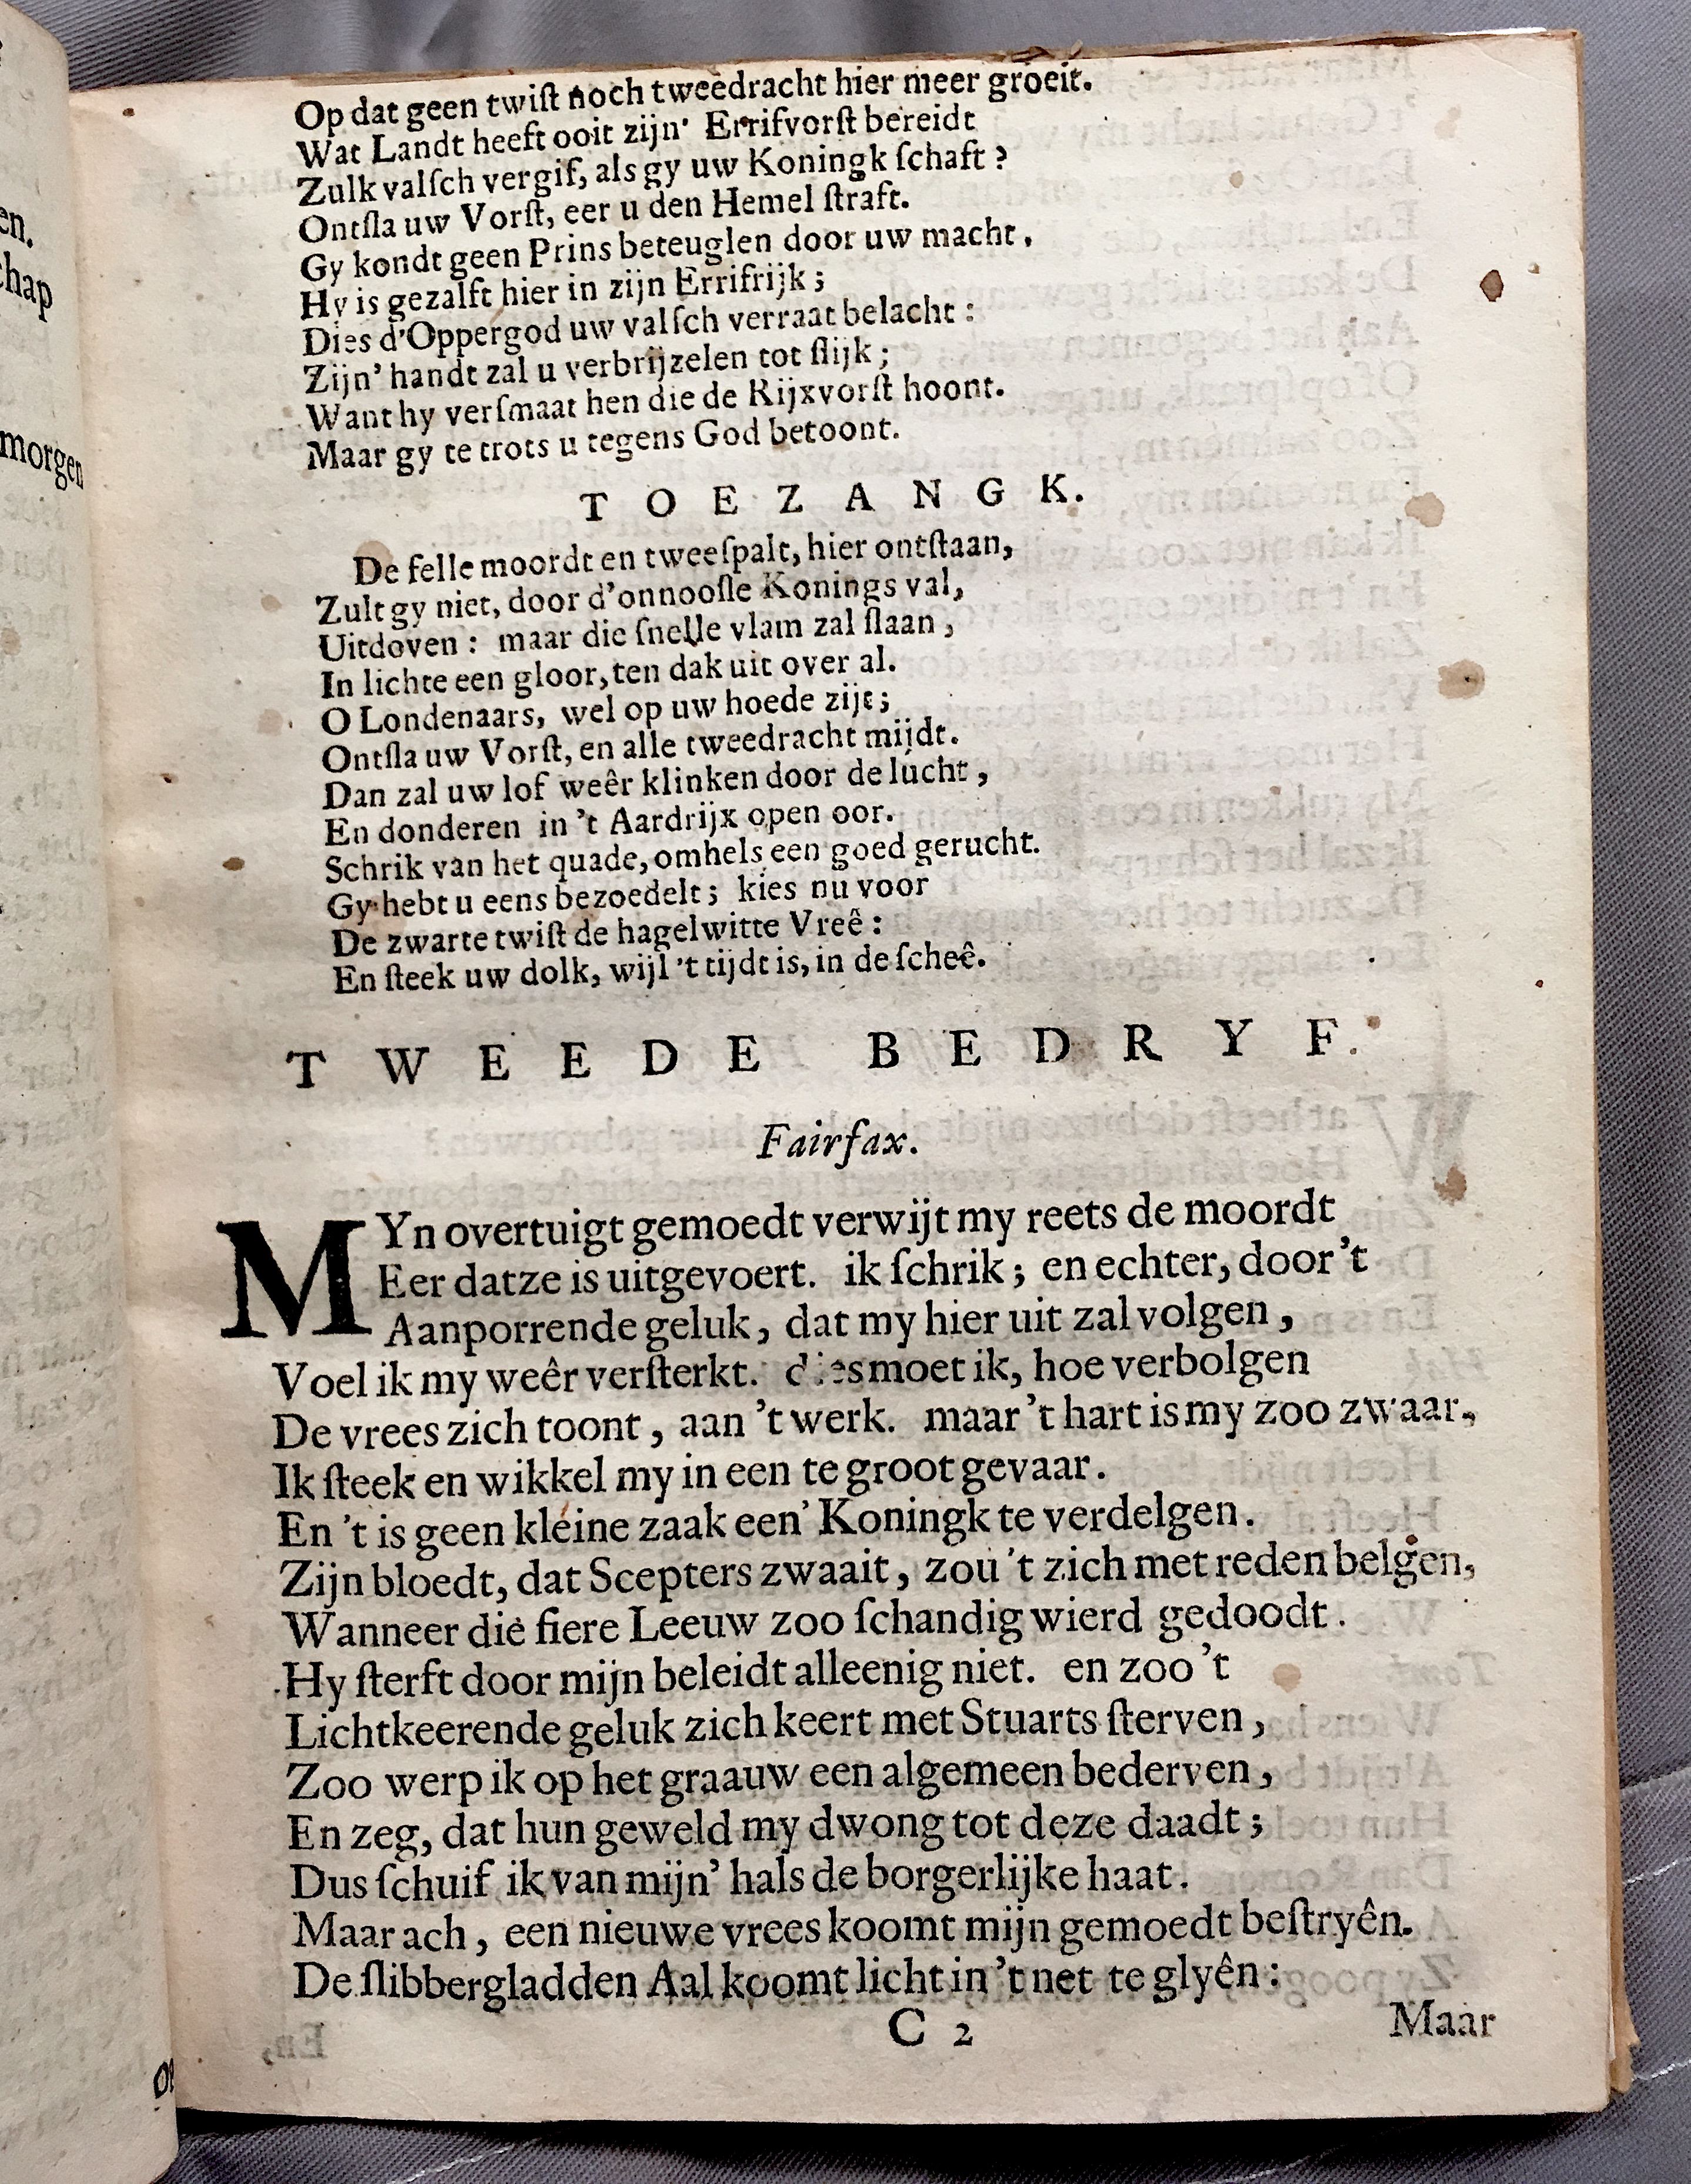 Op dat geen twiſt noch tweedracht hier meer groeit.
Wat Landt heeft ooit zijn' Errifvorſt bereidt
Zulk valſch vergif, als gy uw Koningk ſchaft?
Ontſla uw Vorſt, eer u den Hemel ſtraft.
Gy kondt geen Prins beteuglen door uw macht.
Hy is gezalft hier in zijn Errifrijk;
Dies d'Oppergod uw valſch verraat belacht:
Zijn' handt zal u verbrijzelen tot ſlijk;
Want hy verſmaat hen die de Rijxvorſt hoont.
Maar gy te trots u tegens God betoont.
TOEZANGK.
De felle moordt en tweeſpalt, hier ontſtaan,
Zult gy niet, door d'onnooſle Konings val,
Uitdoven: maar die ſnelle vlam zal ſlaan,
In lichte een gloor, ten dak uit over al.
O Londenaars, wel op uw hoede zijt;
Ontſla uw Vorſt, en alle tweedracht mijdt.
Dan zal uw lof weêr klinken door de lucht,
En donderen in 't Aardrijx open oor.
Schrik van het quade, omhels een goed gerucht.
Gy hebt u eens bezoedelt; kies nu voor
De zwarte twiſt de hagelwitte Vreê:
En ſteek uw dolk, wijl 't tijdt is, in de ſcheê.
TWEEDE BEDRYF.
Fairfax.
MYn overtuigt gemoedt verwijt my reets de moordt
Eer datze is uitgevoert. ik ſchrik; en echter, door 't
Aanporrende geluk, dat my hier uit zal volgen,
Voel ik my weêr verſterkt. dies moet ik, hoe verbolgen
De vrees zich toont, aan 't werk. maar 't hart is my zoo zwaar,
Ik ſteek en wikkel my in een te groot gevaar.
En 't is geen kleine zaak een' Koningk te verdelgen.
Zijn bloedt, dat Scepters zwaait, zou 't zich met reden belgen,
Wanneer die fiere Leeuw zoo ſchandig wierd gedoodt.
Hy ſterft door mijn beleidt alleenig niet. en zoo 't
Lichtkeerende geluk zich keert met Stuarts ſterven,
Zoo werp ik op het graauw een algemeen bederven,
En zeg, dat hun geweld my dwong tot deze daadt;
Dus ſchuif ik van mijn' hals de borgerlijke haat.
Maar ach, een nieuwe vrees koomt mijn gemoedt beſtryên.
De ſlibbergladden Aal koomt licht in 't net te glyên:
C 2
Maar
en.
chap
morgen